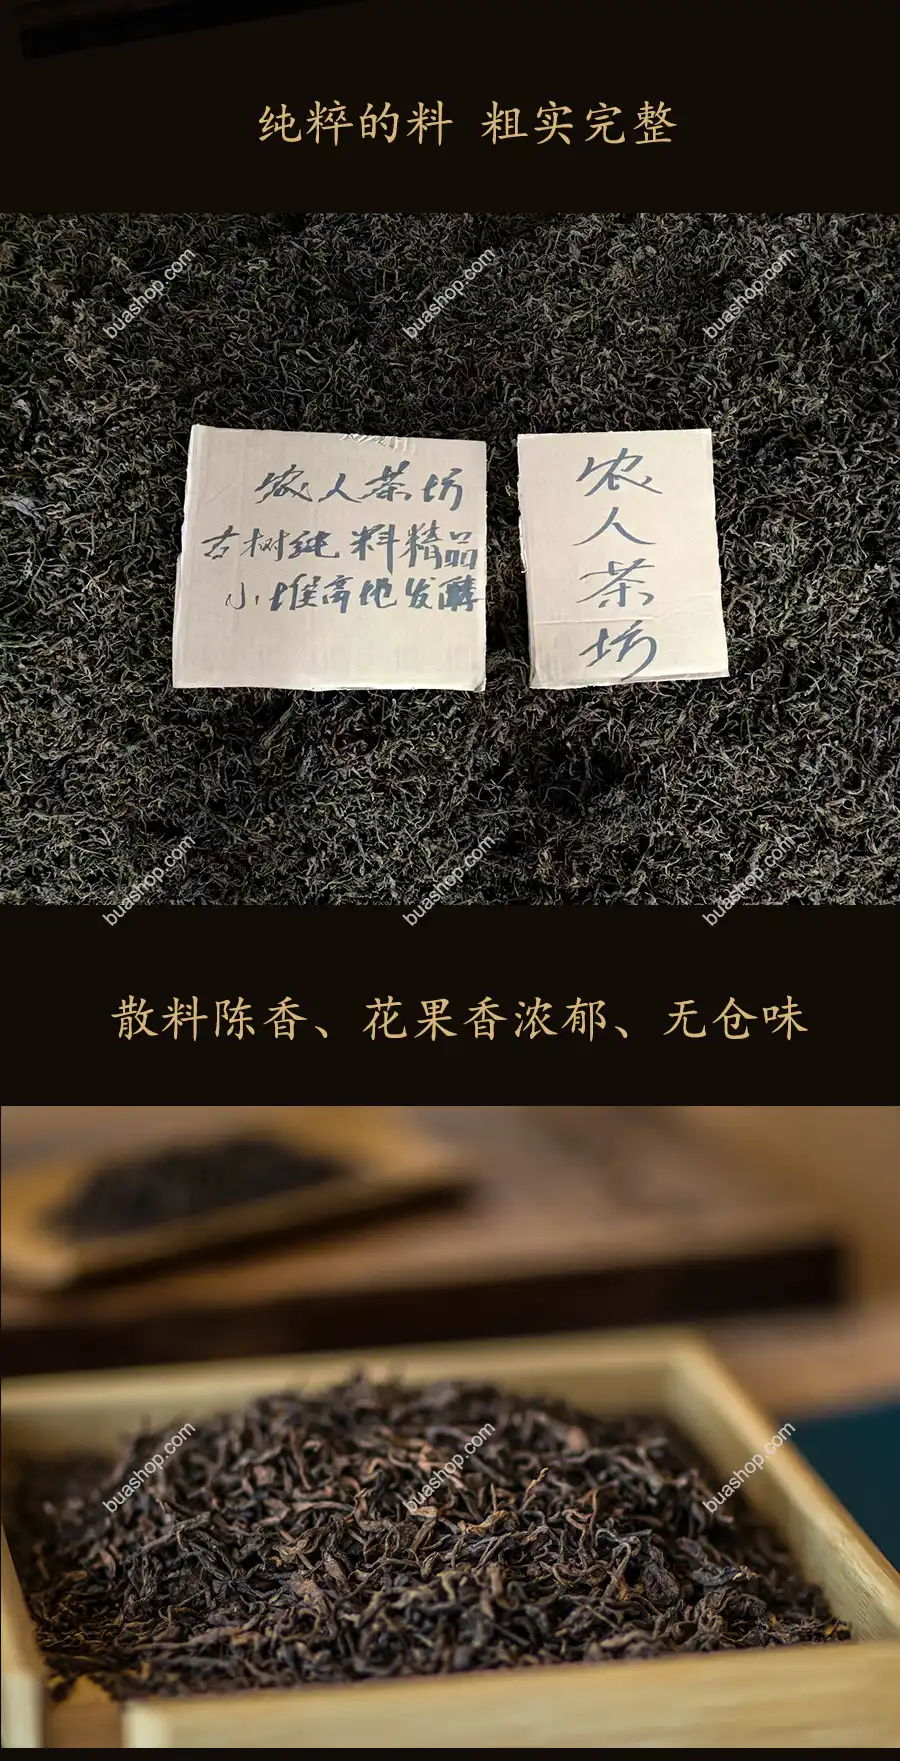 纯粹的料 粗实完整
buashop.com
buashop.com
buashop.com
农人茶坊
古树纯料精品
小堆离地发酵
农
人
茶
坊
buashop.com
buashop.com
buashop.com
散料陈香、花果香浓郁、无仓味
buashop.com
buashop.com
buashop.com